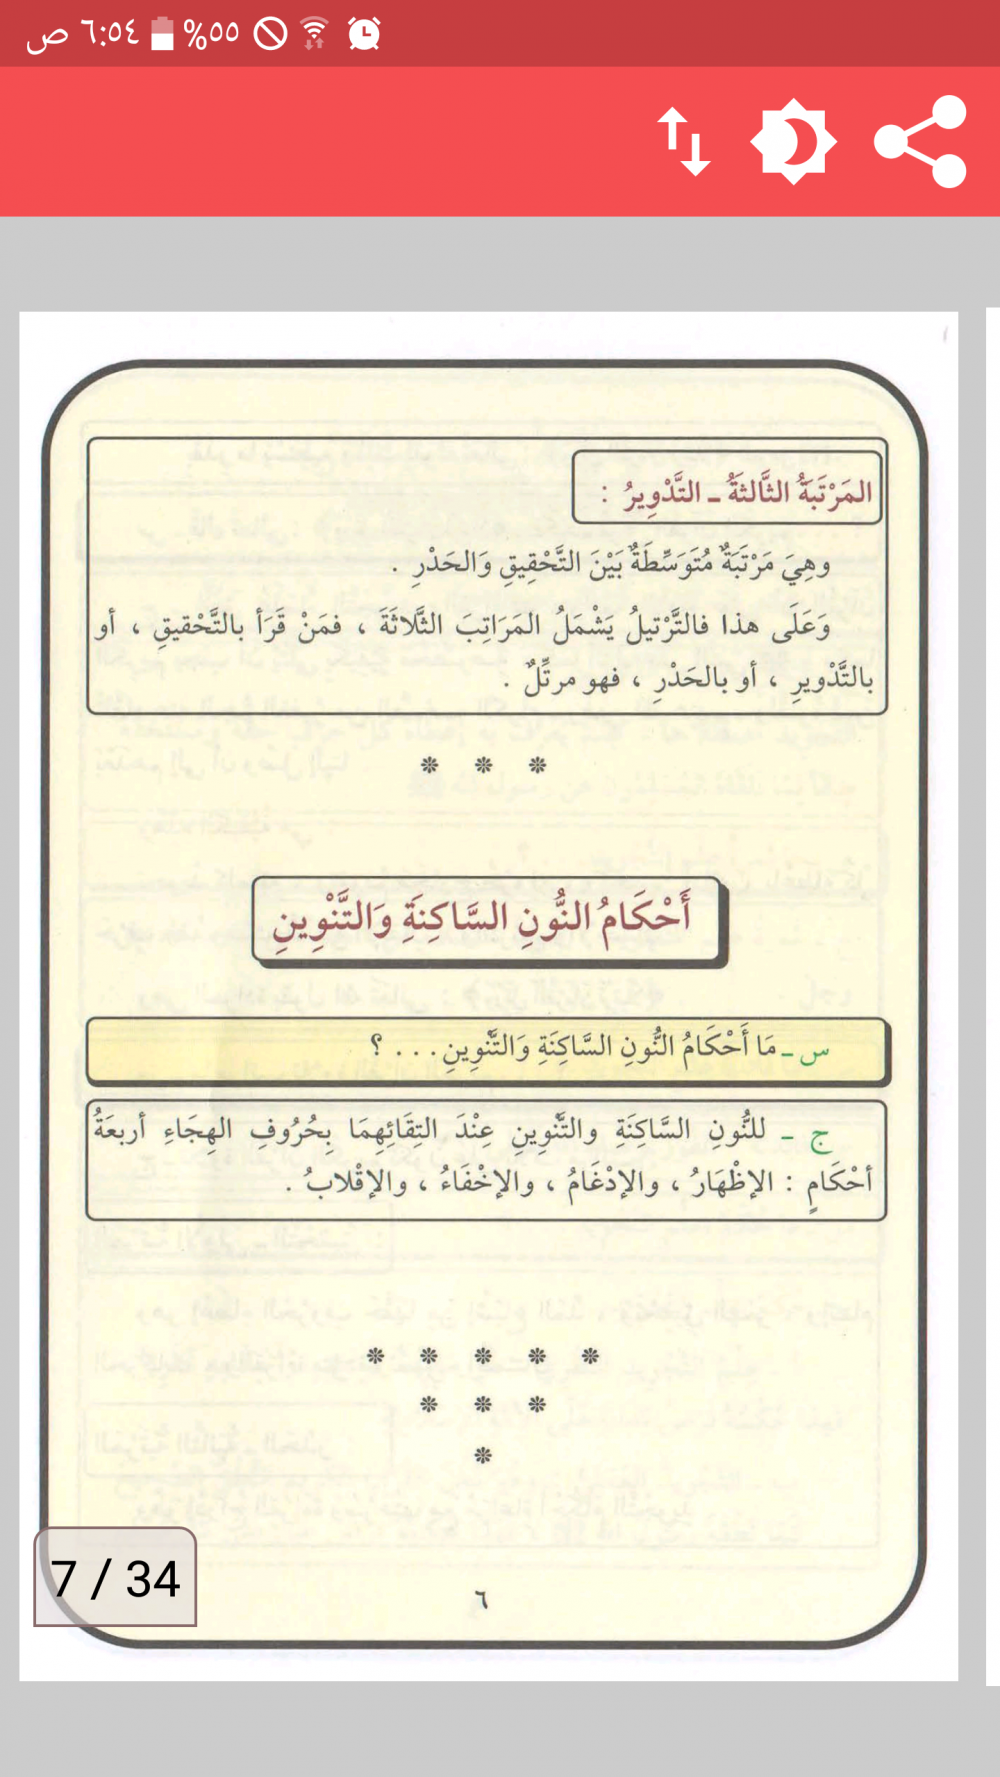 ٦:٥٤ ص ٥٥%
المَرْتَبَةُ الثَّالثَةُ ـ التَّدْوِيرُ :
وهِيَ مَرْتَبَةٌ مُتَوَسِّطَةٌ بَيْنَ التَّحْقِيقِ وَالحَدْرِ .
وَعَلَى هذا فالتَّرْتيلُ يَشْمَلُ المَرَاتِبَ الثَّلاثَةَ ، فمَنْ قَرَأ بالتَّحْقيقِ ، أو
بالتَّدْويرِ ، أو بالحَدْرِ ، فهو مرتِّلٌ .
* * *
أَحْكَامُ النُّونِ السَّاكِنَةِ وَالتَّنْوِينِ
س ـ مَا أَحْكَامُ النُّونِ السَّاكِنَةِ وَالتَّنْوِينِ . . . ؟
ج ـ للنُّونِ السَّاكنَةِ والتَّنْوِينِ عِنْدَ التِقَائِهِمَا بِحُرُوفِ الهِجَاءِ أربعَةُ
أحْكَامٍ : الإظْهَارُ ، والإدْغَامُ ، والإخْفَاءُ ، والإقْلابُ .
* * * * *
* * *
*
7 / 34
٦